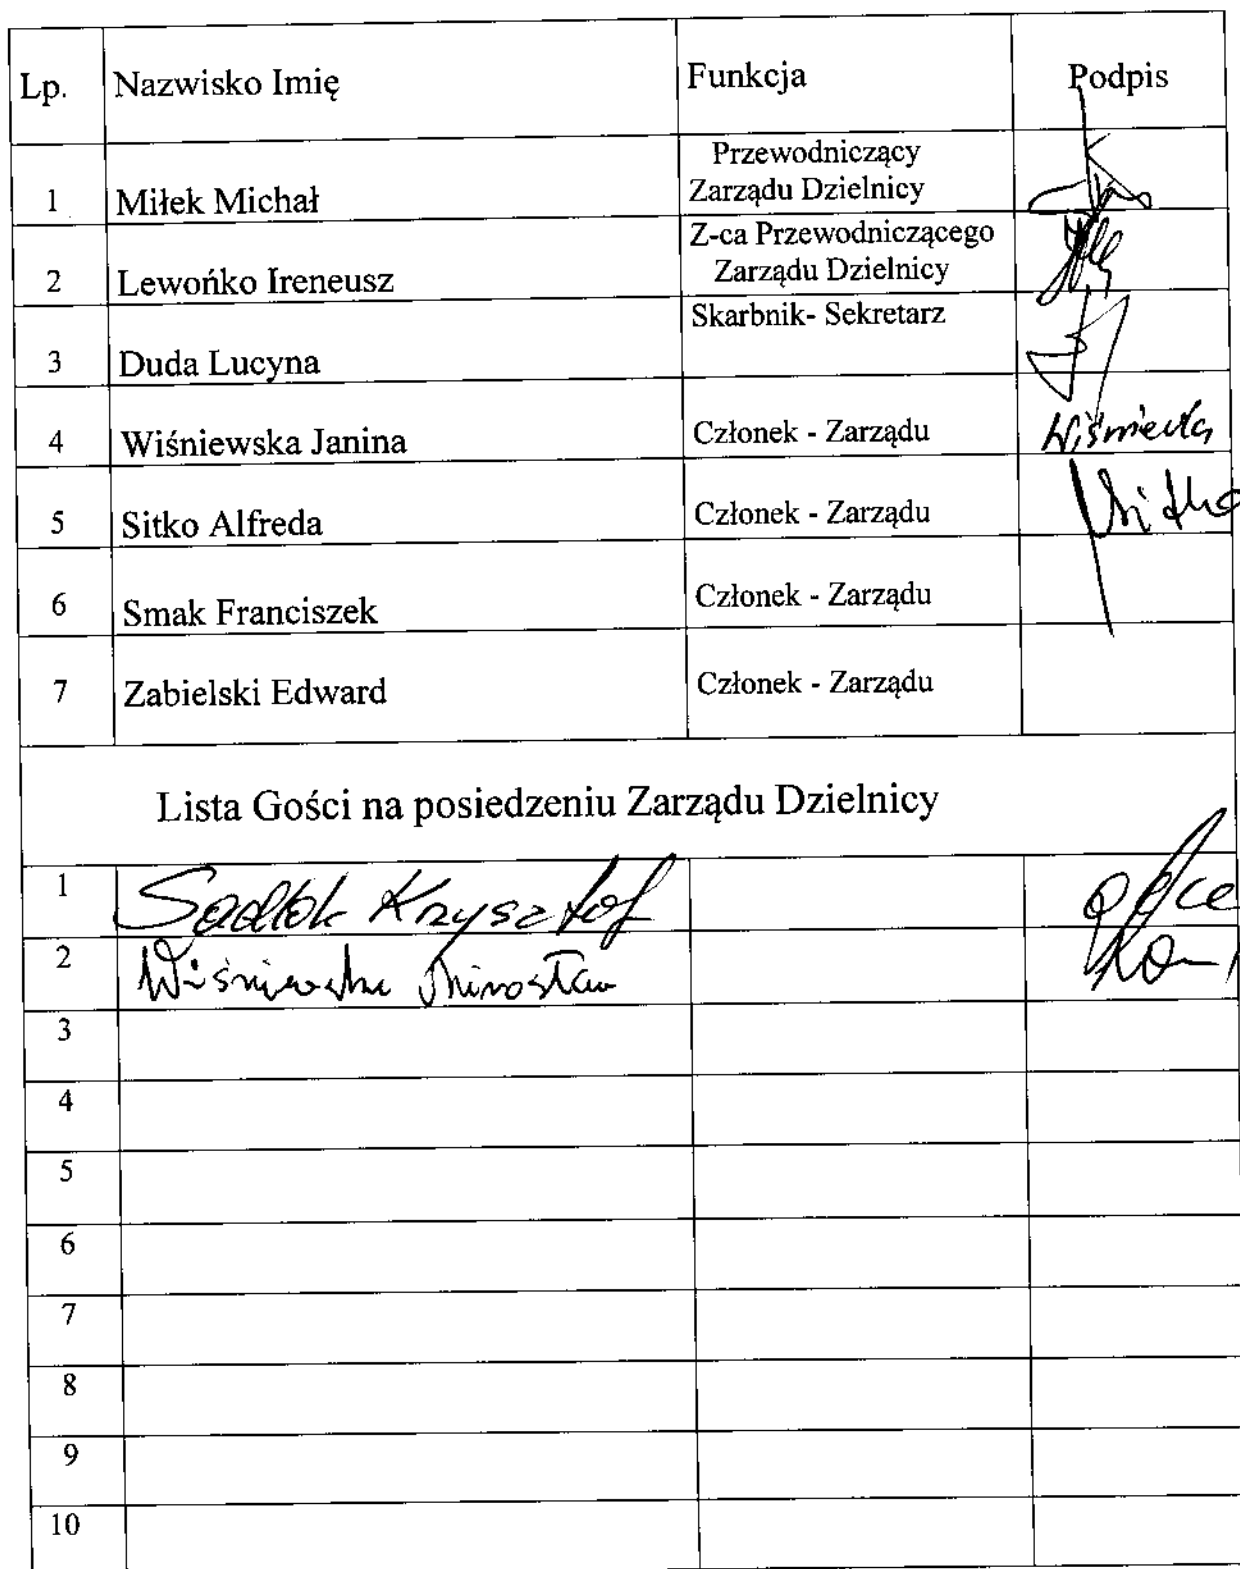 Lp. Nazwisko Imię Funkcja Podpis
1 Miłek Michał Przewodniczący
Zarządu Dzielnicy
2 Lewońko Ireneusz Z-ca Przewodniczącego
Zarządu Dzielnicy
3 Duda Lucyna Skarbnik- Sekretarz
4 Wiśniewska Janina Członek - Zarządu
5 Sitko Alfreda Członek - Zarządu Sitko
6 Smak Franciszek Członek - Zarządu
7 Zabielski Edward Członek - Zarządu
Lista Gości na posiedzeniu Zarządu Dzielnicy
1 Sadłok Krzysztof
2 Mirosław
3
4
5
6
7
8
9
10